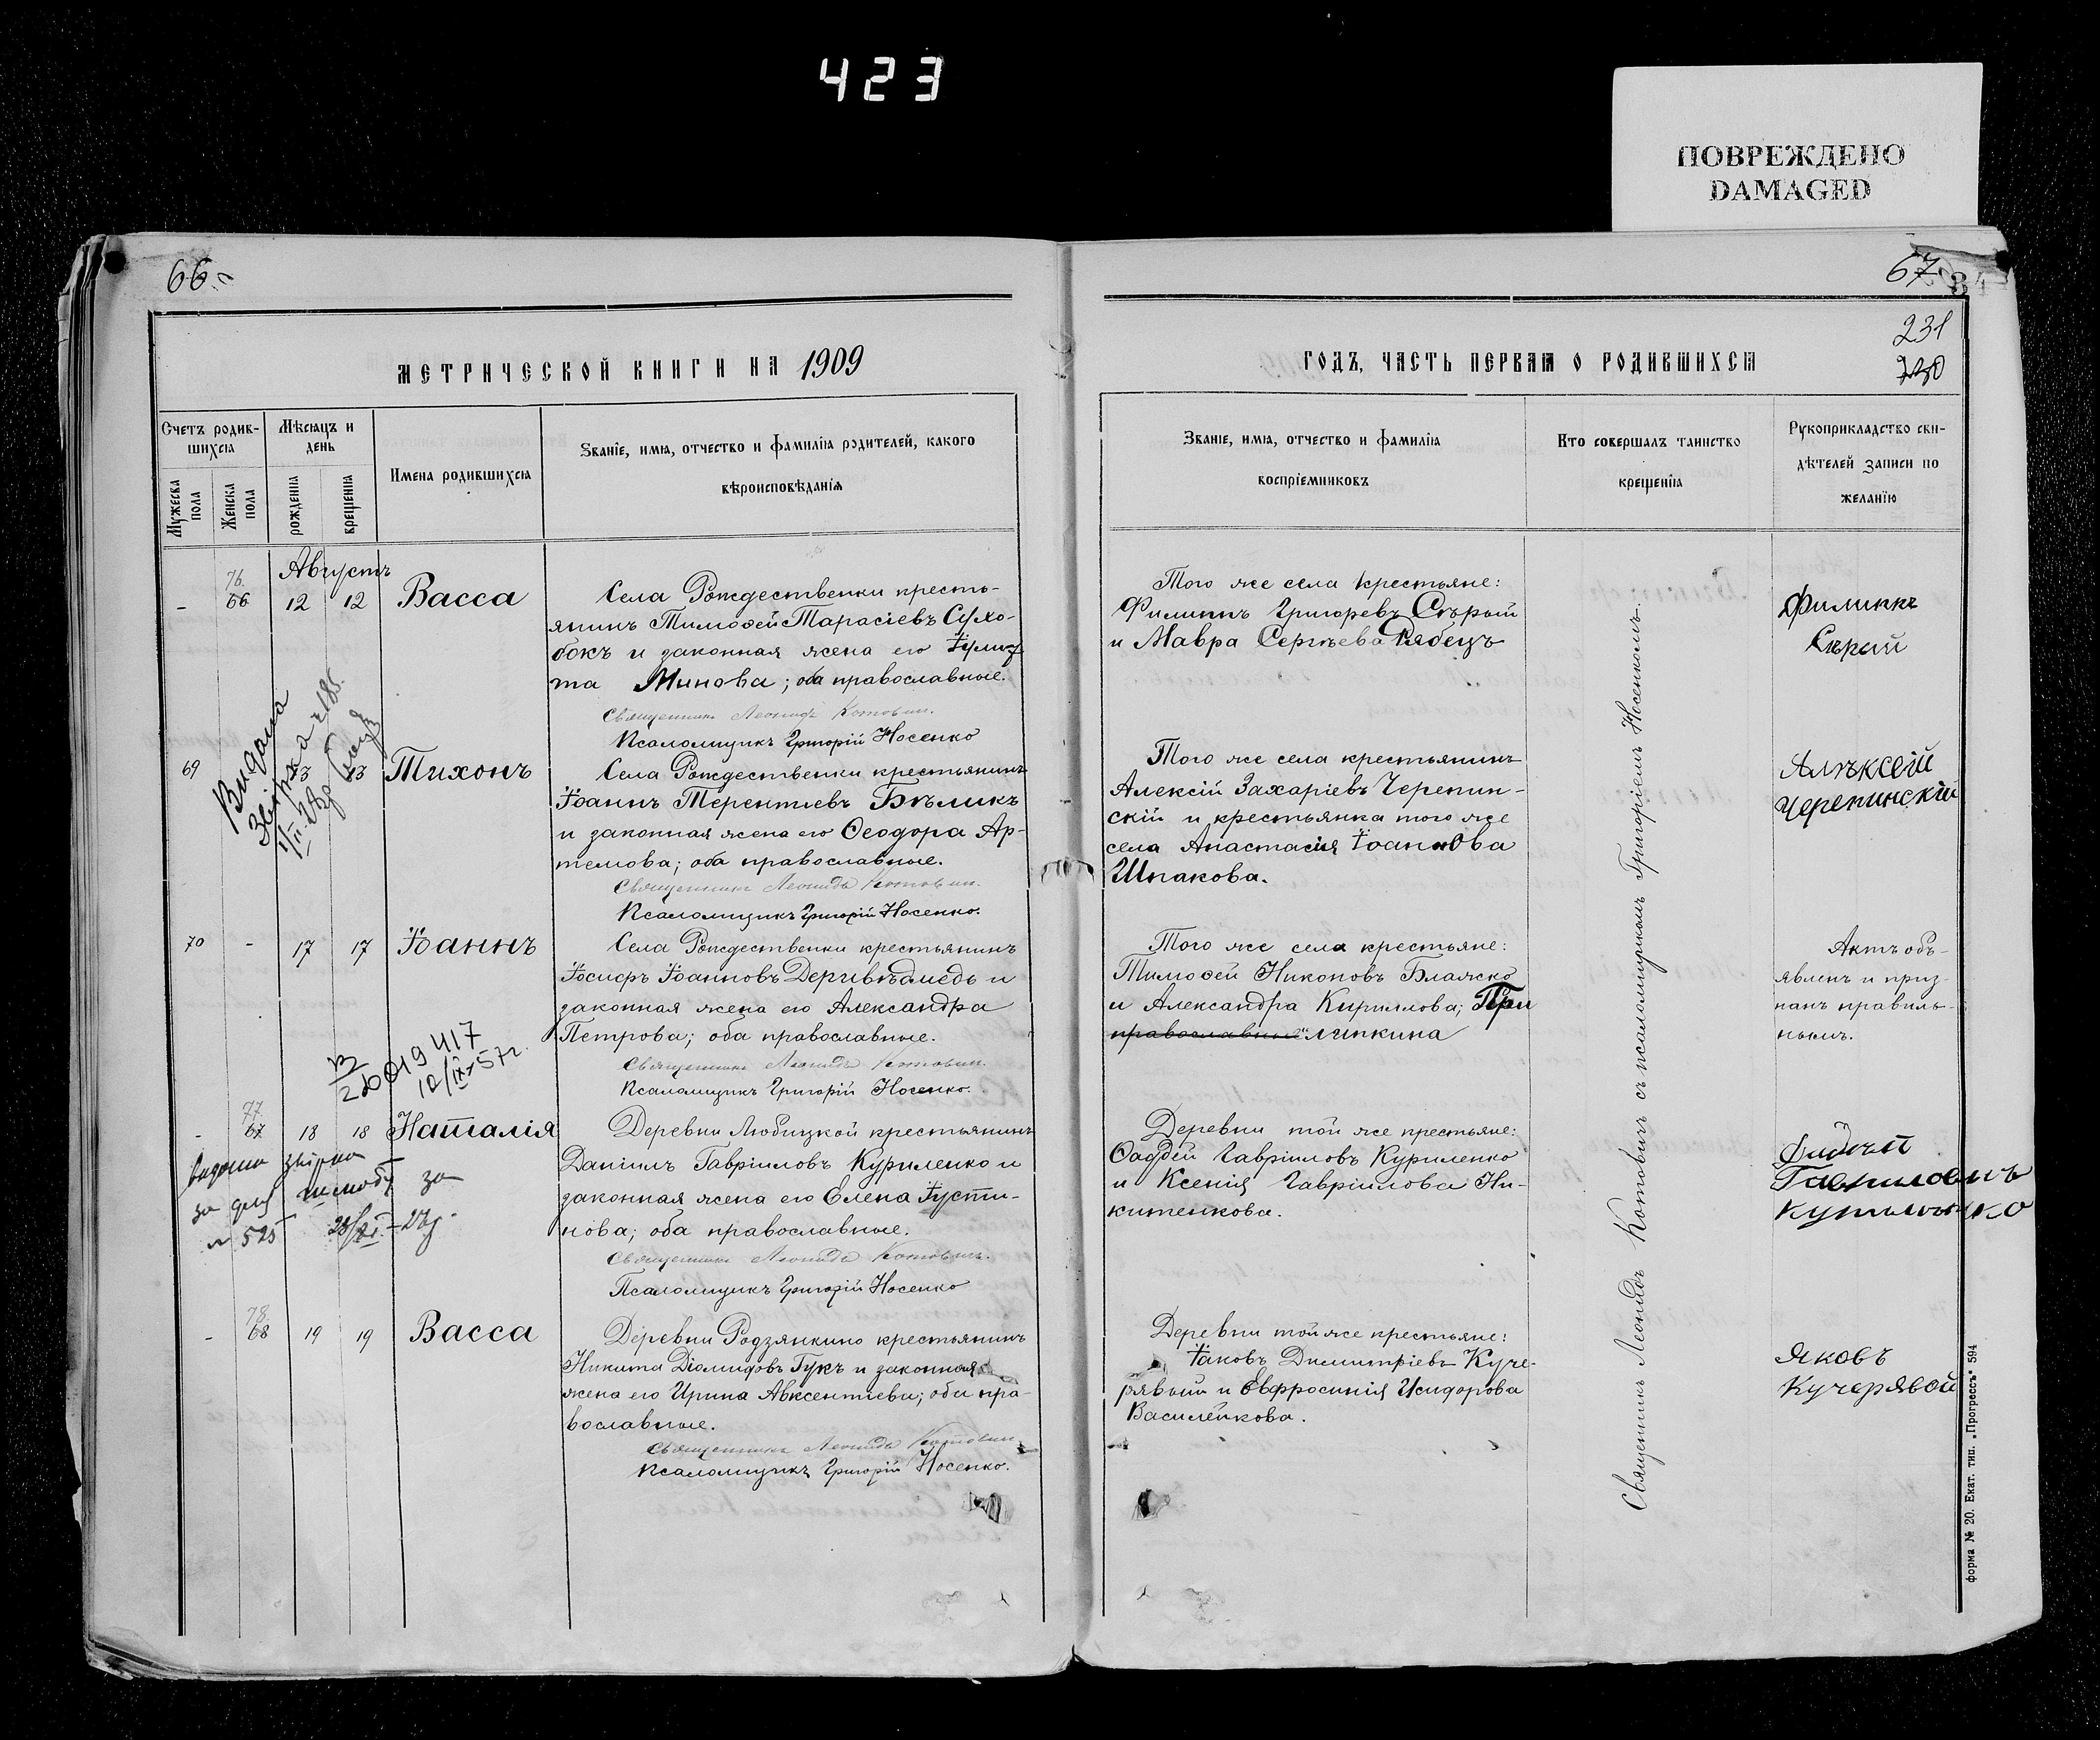 423
ПОВРЕЖДЕНО
DAMAGED
66.
67
34
231
МЕТРИЧЕСКОЙ КНИГИ НА 1909
ГОДЪ, ЧАСТЬ ПЕРВАЯ О РОДИВШИХСЯ
Счетъ родив-
шихся
Мужеска пола
Женска пола
Мѣсяцъ и
день
рожденія
крещенія
Имена родившихся
Званіе, имя, отчество и фамилія родителей, какого
вѣроисповѣданія
Званіе, имя, отчество и фамилія
воспріемниковъ
Кто совершалъ таинство
крещенія
Рукоприкладство сви-
дѣтелей записи по
желанію
Августъ
- 76. 66 12 12 Васса
Села Рождественки кресть-
янинъ Тимоѳей Тарасіевъ Сухо-
бокъ и законная жена его Іулит-
та Минова; оба православные.
Священникъ Леонидъ Котович.
Псаломщикъ Григорій Носенко
Того же села крестьяне:
Филиппъ Григорьевъ Сѣрый
и Мавра Сергѣева Рябецъ
Филиппъ
Сѣрый
69 13 13 Тихонъ
Села Рождественки крестьянинъ
Іоаннъ Терентіевъ Бѣликъ
и законная жена его Ѳеодора Ар-
темова; оба православные.
Священникъ Леонидъ Котович.
Псаломщикъ Григорій Носенко.
Того же села крестьянинъ
Алексій Захаріевъ Черепин-
скій и крестьянка того же
села Анастасія Іоаннова
Шпакова.
Алѣксей
Черепинскій
Видана
70 - 17 17 Іоаннъ
Села Рождественки крестьянинъ
Іосифъ Іоанновъ Деривѣдмедь и
законная жена его Александра
Петрова; оба православные.
Священникъ Леонидъ Котович.
Псаломщикъ Григорій Носенко.
Того же села крестьяне:
Тимоѳей Никоновъ Блажко
и Александра Кириллова; При
православные липкина
Актъ объ-
явленъ и приз-
нанъ правиль-
нымъ.
12/IX-57г.
- 77. 67 18 18 Наталія
Деревни Любицкой крестьянинъ
Даніилъ Гавріиловъ Куриленко и
законная жена его Елена Іусти-
нова; оба православные.
Священникъ Леонидъ Котович.
Псаломщикъ Григорій Носенко
Деревни той же крестьяне:
Ѳаддей Гавріиловъ Куриленко
и Ксенія Гавріилова Ни-
китенкова.
за
№ 525
- 78. 68 19 19 Васса
Деревни Родзянкино крестьянинъ
Никита Діомидовъ Гукъ и законная
жена его Ирина Авксентіева; оба пра-
вославные.
Священникъ Леонидъ Котович.
Псаломщикъ Григорій Носенко.
Деревни той же крестьяне:
Іаковъ Димитріевъ Куче-
рявый и Евфросинія Исидорова
Василенкова.
Яковъ
Кучерявой
Священникъ Леонидъ Котовичъ съ псаломщикомъ Григоріемъ Носенкомъ.
форма № 20. Екат. тип. „Прогрессъ" 594